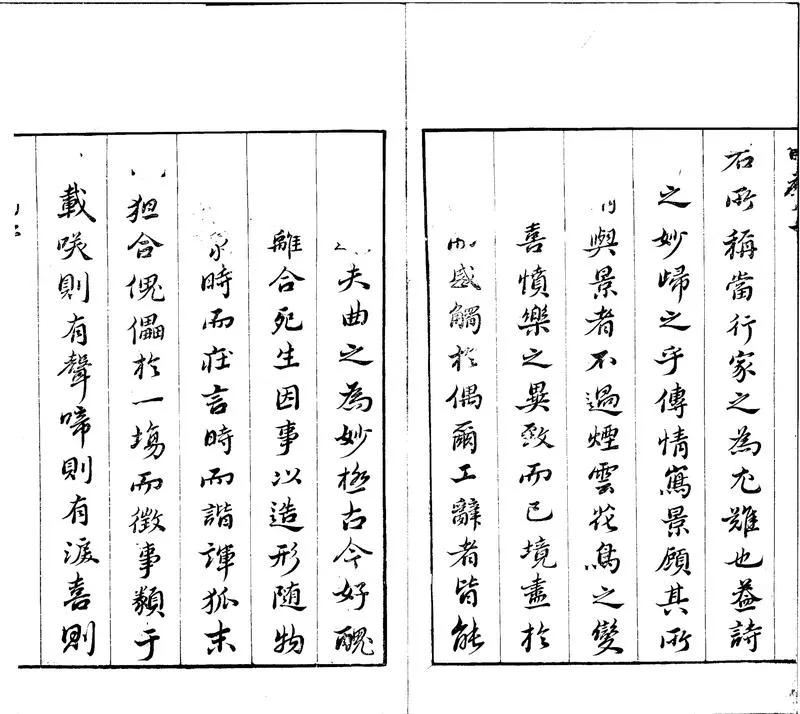 石所稱當行家之為尤難也蓋詩
之妙歸之乎傳情寫景顧其所
與景者不過煙雲花鳥之變
喜憤樂之異致而已境盡於
感觸於偶爾工辭者皆能
夫曲之為妙極古今好醜
離合死生因事以造形随物
時而莊言時而諧諢狐末
狚合傀儡於一場而徵事類于
載咲則有聲啼則有淚喜則